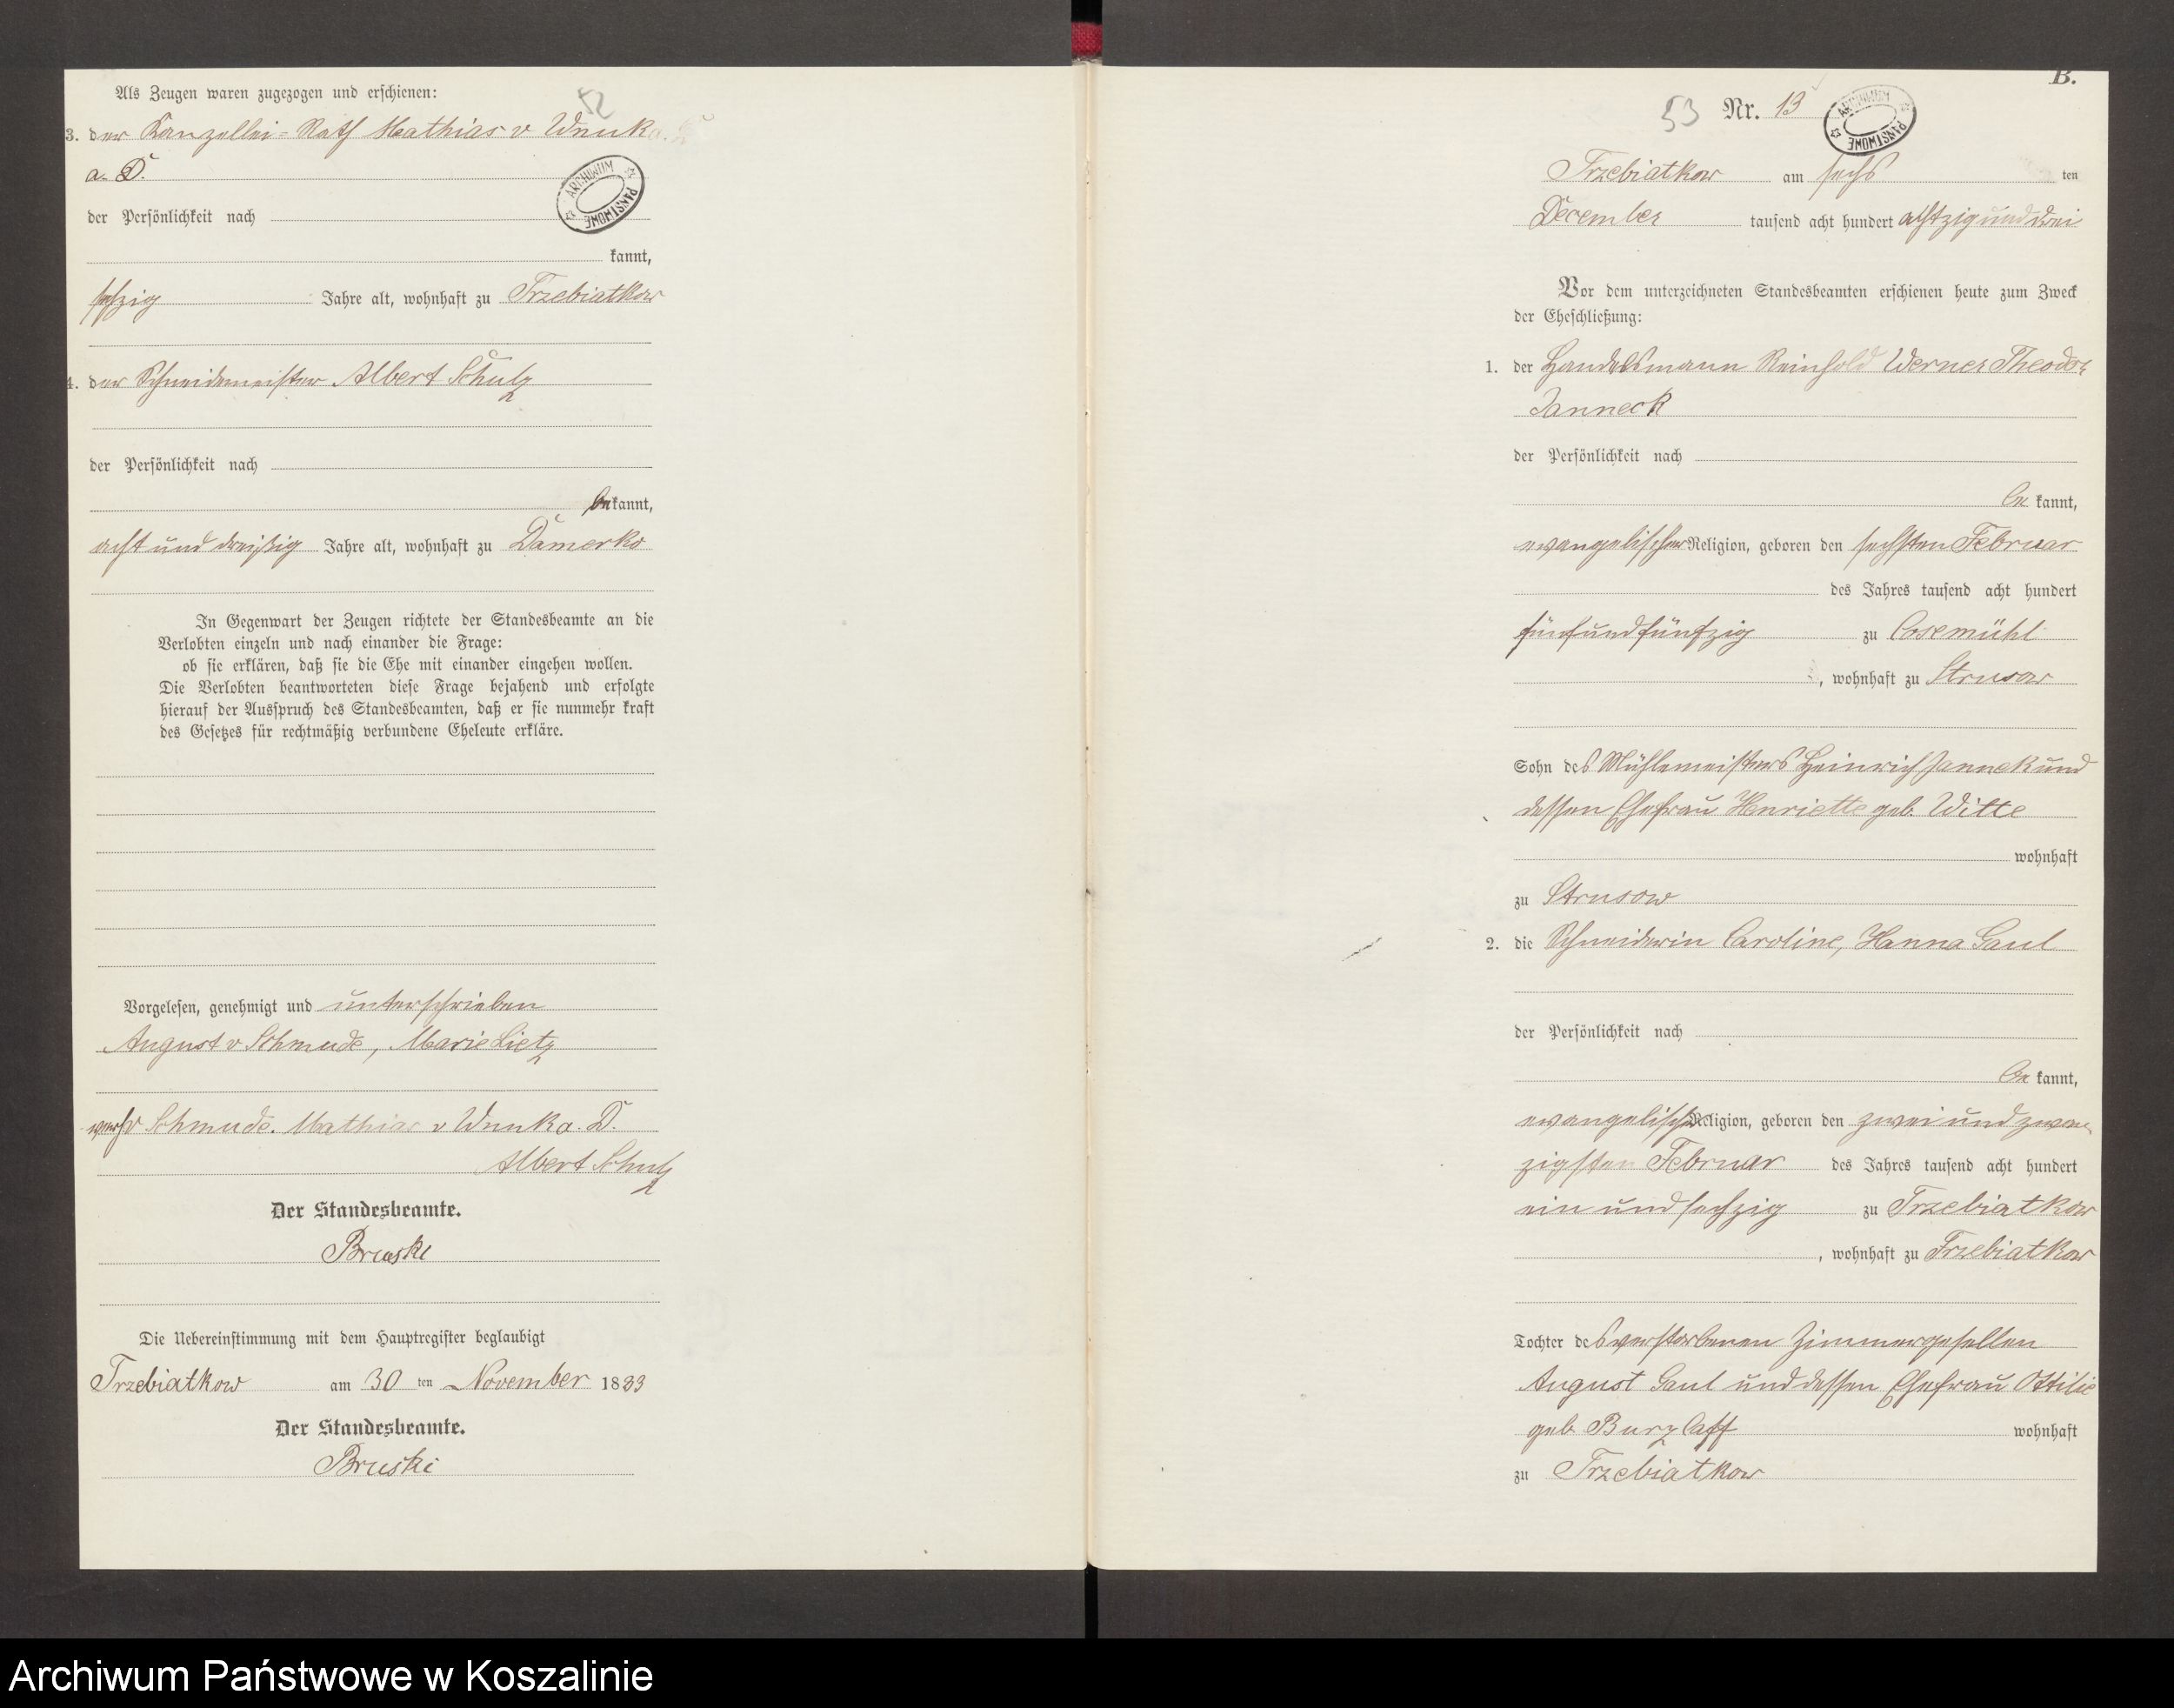 Als Zeugen waren zugezogen und erschienen:
52
3. der Kanzellei-Rath Mathias v Wnuk
a. D.
ARCHIWUM PAŃSTWOWE
der Persönlichkeit nach
kannt,
sechzig Jahre alt, wohnhaft zu Trzebiatkow
4. der Schneidemeister Albert Schulz
der Persönlichkeit nach
bekannt,
acht und dreißig Jahre alt, wohnhaft zu Damerko
In Gegenwart der Zeugen richtete der Standesbeamte an die
Verlobten einzeln und nach einander die Frage:
ob sie erklären, daß sie die Ehe mit einander eingehen wollen.
Die Verlobten beantworteten diese Frage bejahend und erfolgte
hierauf der Ausspruch des Standesbeamten, daß er sie nunmehr kraft
des Gesetzes für rechtmäßig verbundene Eheleute erkläre.
Vorgelesen, genehmigt und unterschrieben
August v Schmude, Marie Lietz
v Schmude. Mathias v Wnuk a. D.
Albert Schulz
Der Standesbeamte.
Bruski
Die Uebereinstimmung mit dem Hauptregister beglaubigt
Trzebiatkow am 30 ten November 1883
Der Standesbeamte.
Bruski
B.
53 Nr. 13
ARCHIWUM PAŃSTWOWE
Trzebiatkow am sechs ten
December tausend acht hundert achtzig und drei
Vor dem unterzeichneten Standesbeamten erschienen heute zum Zweck
der Eheschließung:
1. der Handelsmann Reinhold Werner Theodor
Janneck
der Persönlichkeit nach
be kannt,
evangelischer Religion, geboren den sechsten Februar
des Jahres tausend acht hundert
fünf und fünfzig zu Cosemühl
, wohnhaft zu Strusow
Sohn des Mühlemeisters Heinrich Janneck und
dessen Ehefrau Henriette geb. Witte
wohnhaft
zu Strusow
2. die Schneiderin Caroline, Hanna Gaul
der Persönlichkeit nach
be kannt,
evangelischer Religion, geboren den zwei und zwan
zigsten Februar des Jahres tausend acht hundert
ein und sechzig zu Trzebiatkow
, wohnhaft zu Trzebiatkow
Tochter des verstorbenen Zimmergesellen
August Gaul und dessen Ehefrau Ottilie
geb. Burzlaff wohnhaft
zu Trzebiatkow
Archiwum Państwowe w Koszalinie